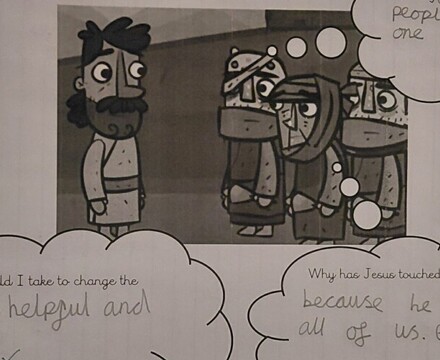 people
one
ld I take to change the
helpful and
Why has Jesus touched
because he
all of us.